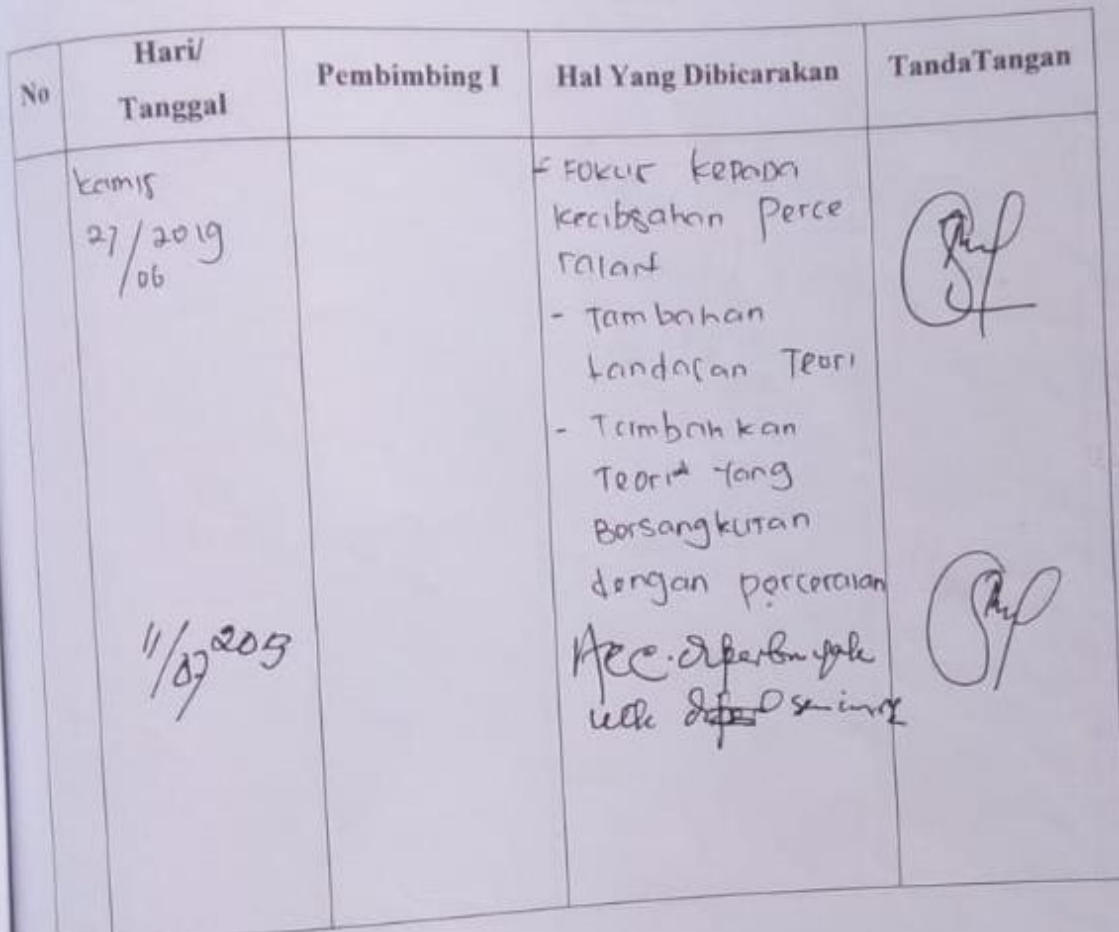 No
Hari/
Tanggal
Pembimbing I
Hal Yang Dibicarakan
TandaTangan
Kamis
27/06 2019
- Fokus kepada
keabsahan Perce
raian
- Tambahan
Landasan Teori
- Tambahkan
Teori Yang
Bersangkutan
dengan perceraian
11/07 2019
Acc. diperbanyak
utk seminar